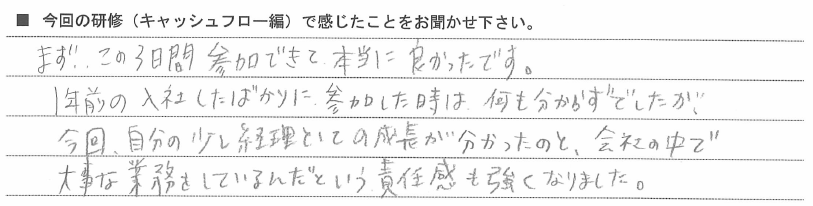 ■ 今回の研修（キャッシュフロー編）で感じたことをお聞かせ下さい。
まず、この3日間 参加できて 本当に 良かったです。
1年前の 入社したばかりに 参加した時は 何も分からずでしたが、
今回、自分の少し経理としての成長が分かったのと、会社の中で
大事な業務をしているんだという責任感も強くなりました。